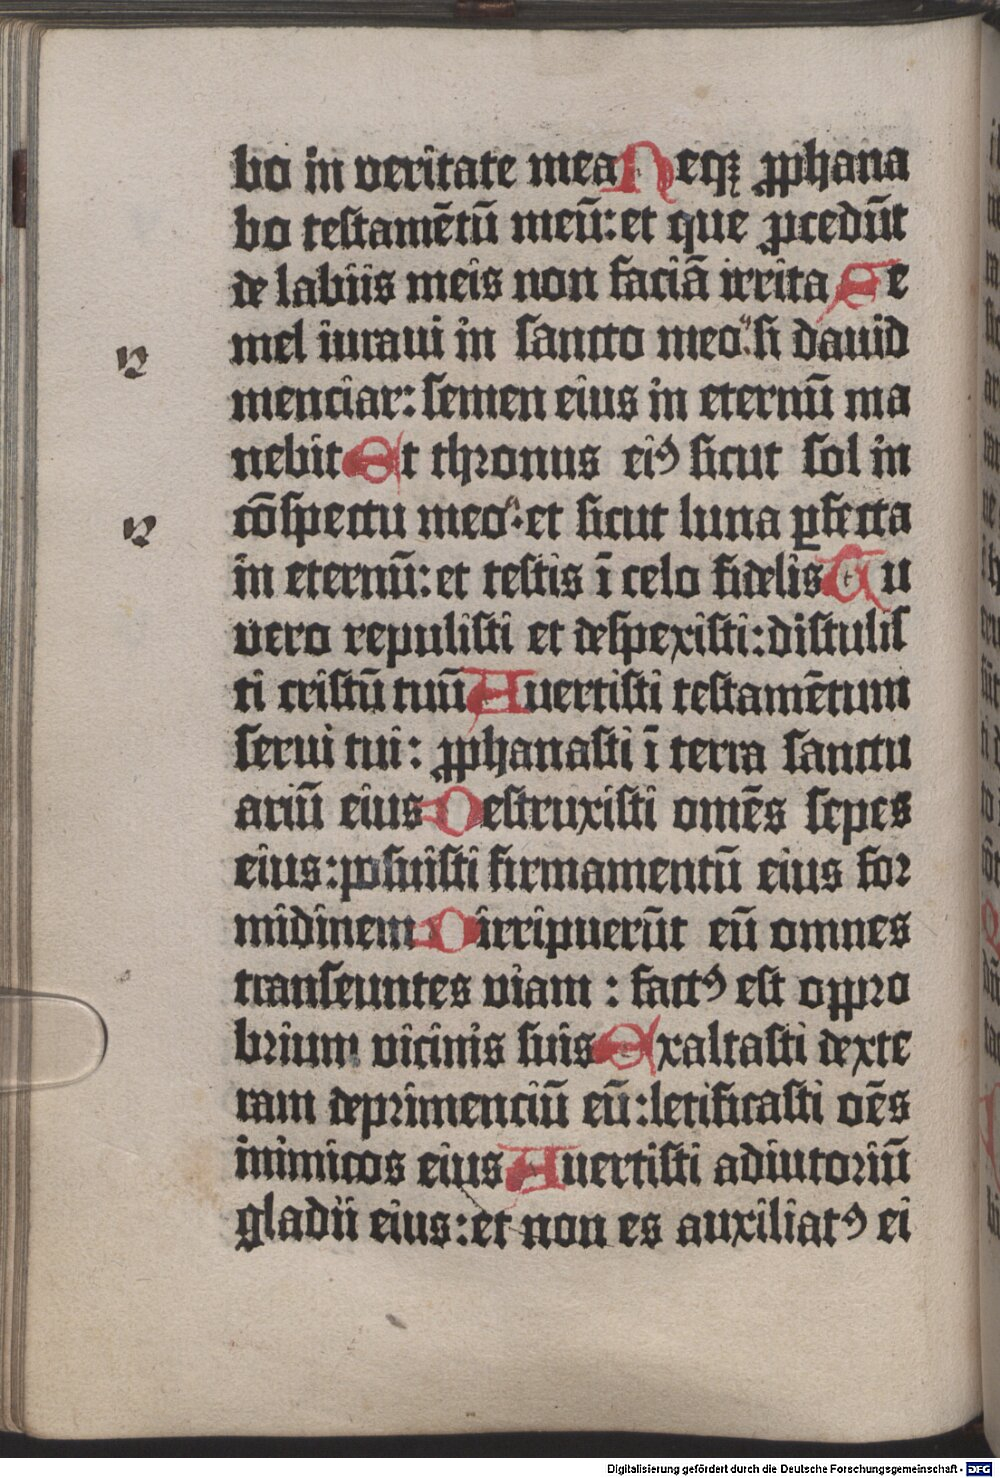 bo in veritate mea Neqꝫ ꝓphana
bo testamētū meū: et que ꝓcedūt
de labiis meis non faciā irrita Se
mel iuraui in sancto meo: si dauid
menciar: semen eius in eternū ma
nebit Et thronus eiꝰ sicut sol in
cōspectu meo: et sicut luna ꝑfecta
in eternū: et testis ī celo fidelis Tu
vero repulisti et despexisti: distulis
ti cristū tuū Auertisti testamētum
serui tui: ꝓphanasti ī terra sanctu
ariū eius Destruxisti omēs sepes
eius: posuisti firmamentū eius for
midinem Dirripuerūt eū omnes
transeuntes viam : factꝰ est oppro
brium vicinis suis Exaltasti dexte
ram deprimenciū eū: letificasti oēs
inimicos eius Auertisti adiutoriū
gladii eius: et non es auxiliatꝰ ei
Digitalisierung gefördert durch die Deutsche Forschungsgemeinschaft - DFG